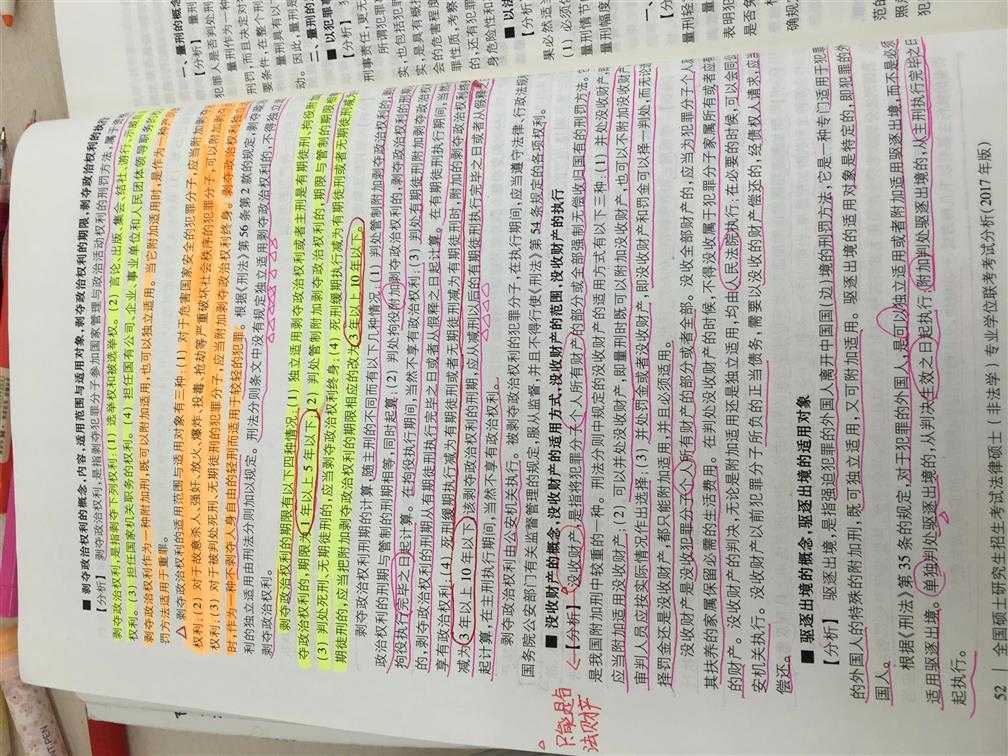 ■ 剥夺政治权利的概念、内容、适用范围与适用对象,剥夺政治权利的期限、剥夺政治权利的执行
【分析】 剥夺政治权利,是指剥夺犯罪分子参加国家管理与政治活动权利的刑罚方法,属于
剥夺政治权利,是指剥夺下列权利:(1) 选举权和被选举权。(2) 言论、出版、集会、结社、游行、示威
权利。(3) 担任国家机关职务的权利。(4) 担任国有公司、企业、事业单位和人民团体领导职务的
剥夺政治权利作为一种附加刑,既可以附加适用,也可以独立适用。当它附加适用时,是作为一种
罚方法适用于重罪。
剥夺政治权利的适用范围与适用对象有三种:(1) 对于危害国家安全的犯罪分子,应当附加剥夺
权利;(2) 对于故意杀人、强奸、放火、爆炸、投毒、抢劫等严重破坏社会秩序的犯罪分子,可以附加剥夺
权利;(3) 对于被判处死刑、无期徒刑的犯罪分子,应当附加剥夺政治权利终身。剥夺政治权利独立
时,作为一种不剥夺人身自由的轻刑而适用于较轻的犯罪。根据《刑法》第 56 条第 2 款的规定,剥夺
利的独立适用由刑法分则加以规定。刑法分则条文中没有规定独立适用剥夺政治权利的,不得独立
剥夺政治权利。
剥夺政治权利的期限有以下四种情况:(1) 独立适用剥夺政治权利或者主刑是有期徒刑、拘役附加
夺政治权利的,期限为 1 年以上 5 年以下。(2) 判处管制附加剥夺政治权利的,期限与管制的期限相
(3) 判处死刑、无期徒刑的,应当剥夺政治权利终身。(4) 死刑缓期执行减为有期徒刑或者无期徒刑减为
期徒刑的,应当把附加剥夺政治权利的期限相应的改为 3 年以上 10 年以下。
剥夺政治权利刑期的计算,随主刑的不同而有以下几种情况:(1) 判处管制附加剥夺政治权利的,
政治权利的刑期与管制的刑期相等,同时起算;(2) 判处拘役附加剥夺政治权利的,剥夺政治权利的刑期
拘役执行完毕之日起计算。在拘役执行期间,当然不享有政治权利;(3) 判处有期徒刑附加剥夺政治权利
的,剥夺政治权利的刑期从有期徒刑执行完毕之日或者从假释之日起计算。在有期徒刑执行期间,当然
享有政治权利;(4) 死刑缓期执行减为有期徒刑或者无期徒刑减为有期徒刑时,附加的剥夺政治权利
减为 3 年以上 10 年以下,该剥夺政治权利的刑期,应从减刑以后的有期徒刑执行完毕之日或者从假释
起计算,在主刑执行期间,当然不享有政治权利。
剥夺政治权利由公安机关执行。被剥夺政治权利的犯罪分子,在执行期间,应当遵守法律、行政法规
国务院公安部门有关监督管理的规定,服从监督,并且不得行使《刑法》第 54 条规定的各项权利。
■ 没收财产的概念、没收财产的适用方式、没收财产的范围、没收财产的执行
【分析】 没收财产,是指将犯罪分子个人所有财产的部分或全部强制无偿收归国有的刑罚方法。
是我国附加刑中较重的一种。刑法分则中规定的没收财产的适用方式有以下三种:(1) 并处没收财产,
应当附加适用没收财产。(2) 可以并处没收财产,即量刑时既可以附加没收财产,也可以不附加没收财产
审判人员应按实际情况作出选择;(3) 并处罚金或者没收财产,即没收财产和罚金可以择一判处,而无论
择罚金还是没收财产,都只能附加适用,并且必须适用。
没收财产是没收犯罪分子个人所有财产的部分或者全部。没收全部财产的,应当为犯罪分子个人
其扶养的家属保留必需的生活费用。在判处没收财产的时候,不得没收属于犯罪分子家属所有或者应有
的财产。没收财产的判决,无论是附加适用还是独立适用,均由人民法院执行;在必要的时候,可以会同公
安机关执行。没收财产以前犯罪分子所负的正当债务需要以没收的财产偿还的,经债权人请求,应当
偿还。
只能是合法财产
■ 驱逐出境的概念、驱逐出境的适用对象
【分析】 驱逐出境,是指强迫犯罪的外国人离开中国国(边)境的刑罚方法,它是一种专门适用于犯罪
的外国人的特殊的附加刑,既可独立适用,又可附加适用。驱逐出境的适用对象是特定的,即犯罪的外
国人。
根据《刑法》第 35 条的规定,对于犯罪的外国人,是可以独立适用或者附加适用驱逐出境,而不是必须
适用驱逐出境。单独判处驱逐出境的,从判决生效之日起执行;附加判处驱逐出境的,从主刑执行完毕之日
起执行。
52 │ 全国硕士研究生招生考试法律硕士(非法学)专业学位联考考试分析(2017 年版)
一、量刑的概念
【分析】 量刑
二、量刑的
■ 以犯罪事
【分析】
■ 以法